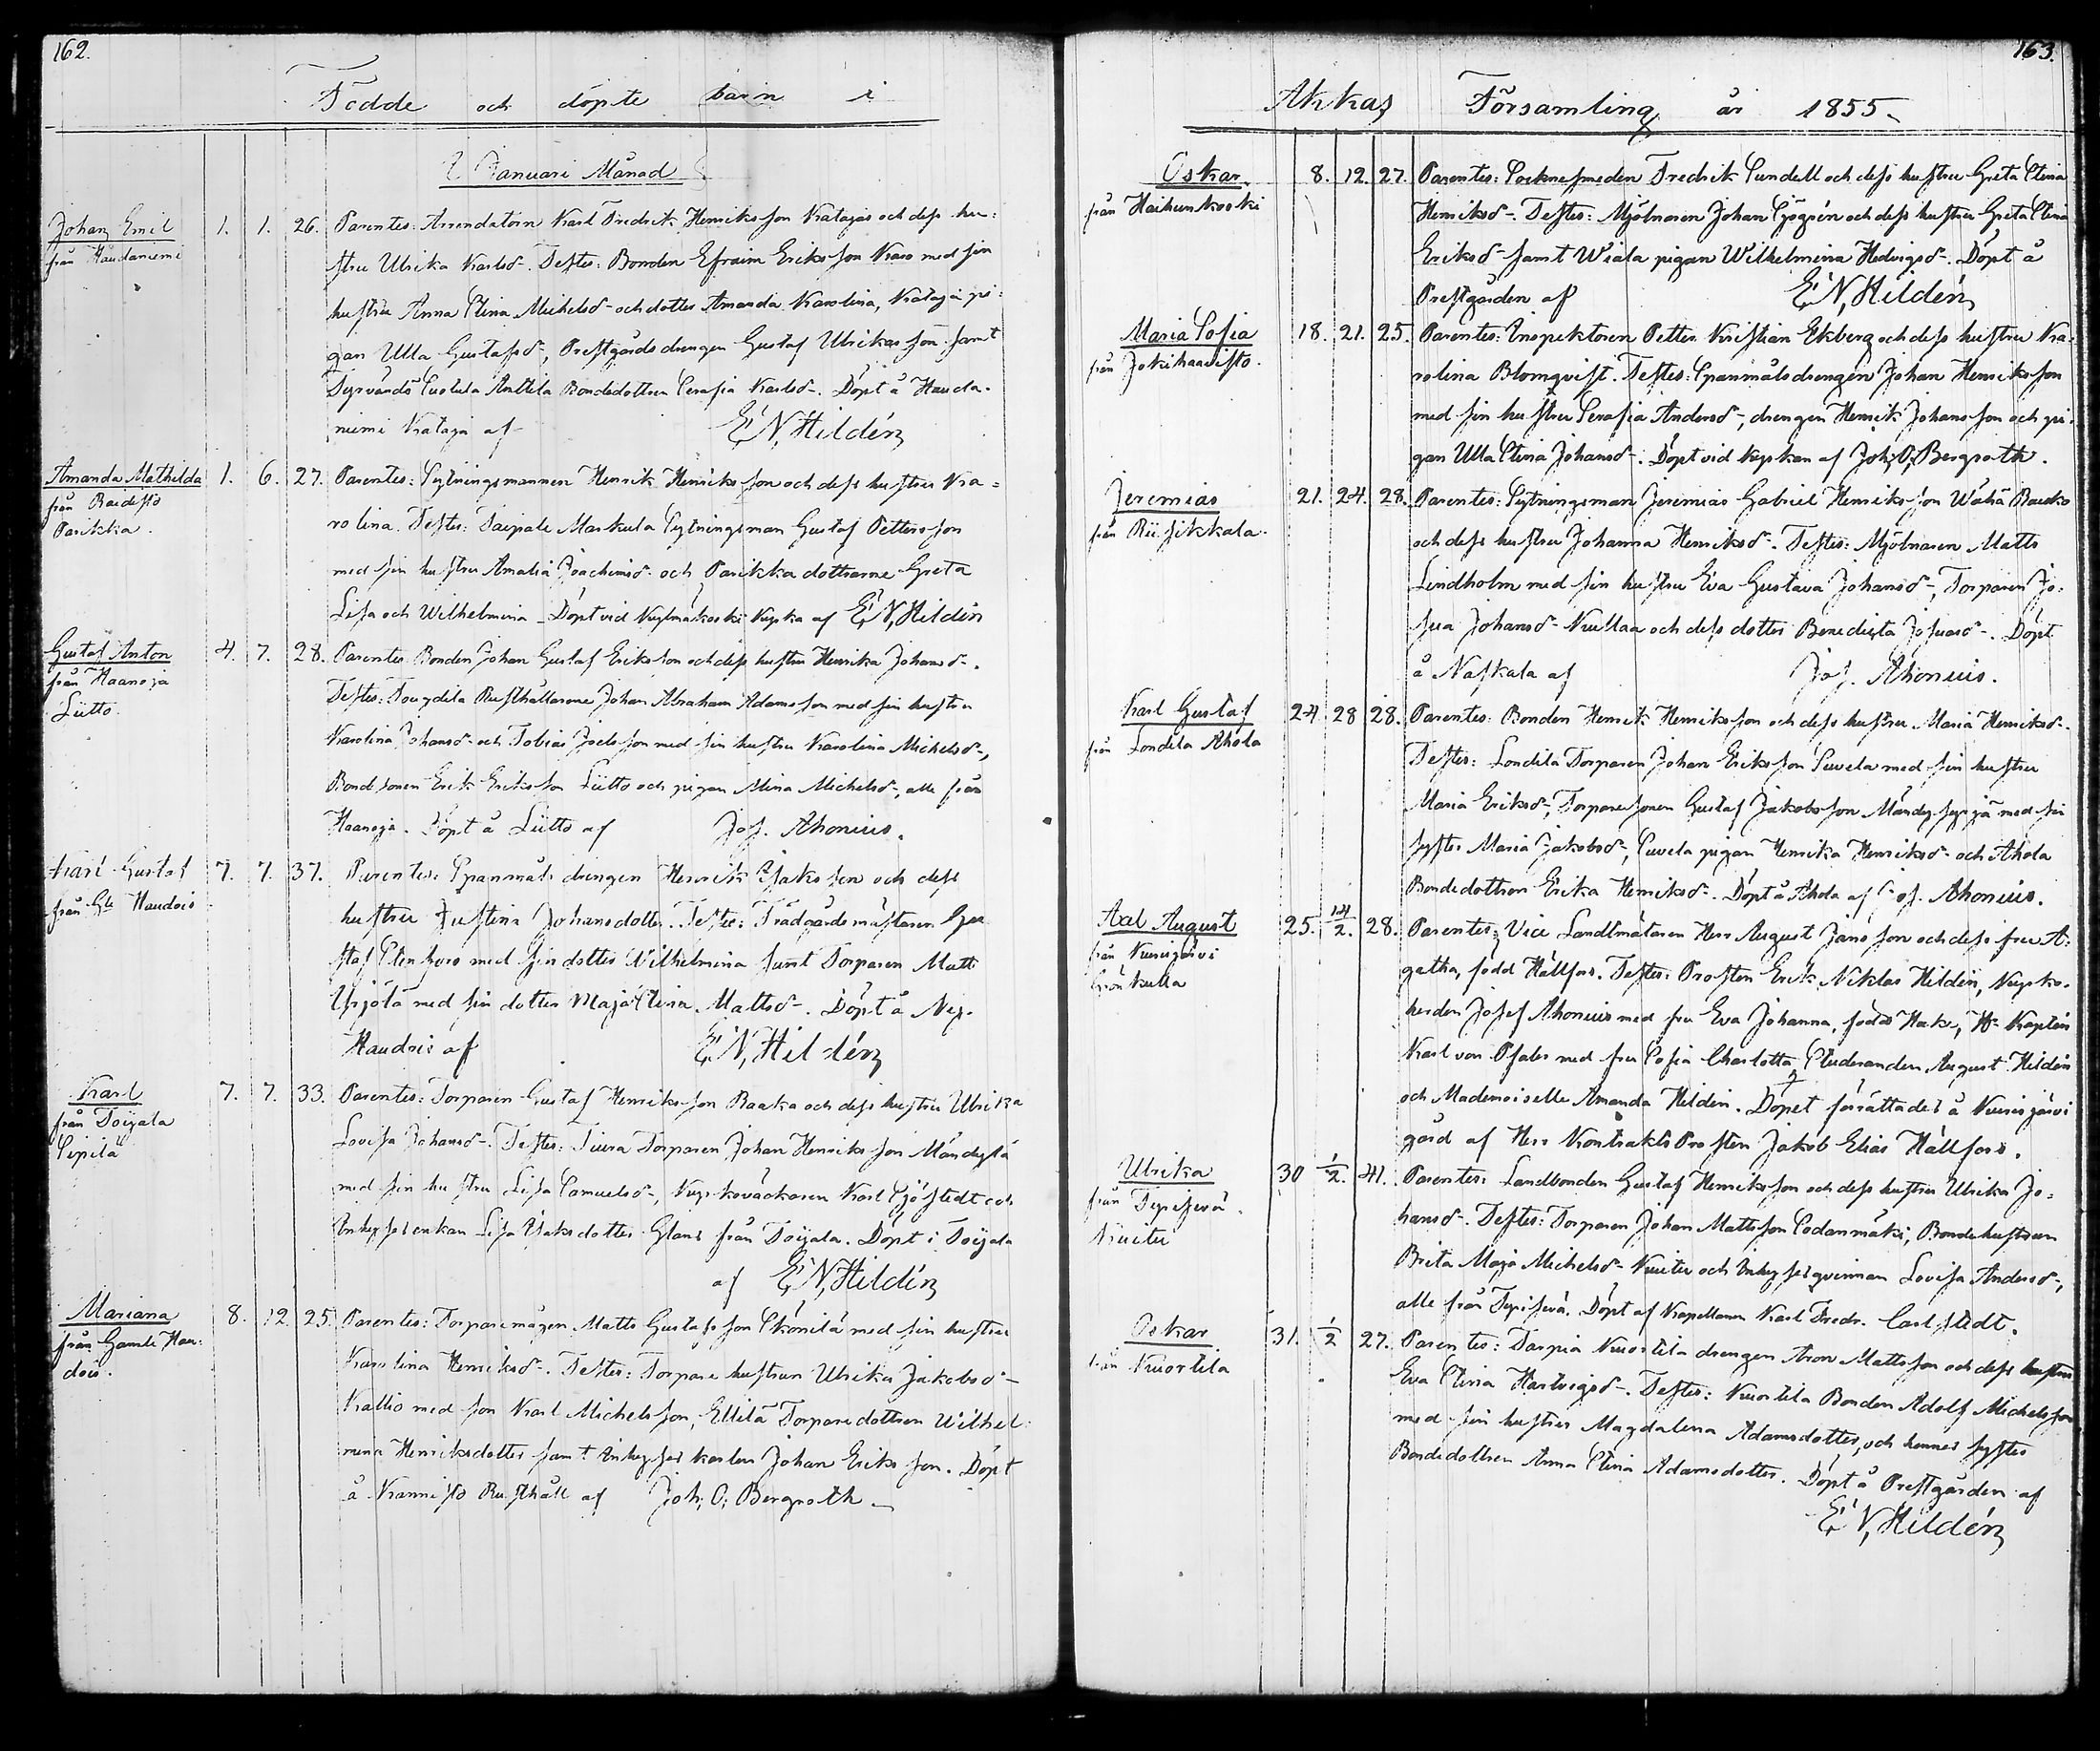 162.
Födde och döpte barn i
Januari Månad
Johan Emil
från Haudaniemi
1. 1. 26. Parentes: Arrendatorn Karl Fredrik Henriksson Kataja och dess hu=
stru Ulrika Karlsd-. Testes: Bonden Efraim Eriksson Kaso med sin
hustru Anna Stina Michelsd- och dotter Amanda Karolina, Kataja pi=
gan Ulla Gustafsd-, Prestgårdsdrengen Gustaf Ulriksson samt
Anttila Bondedottren Serafia Karlsd-. Döpt å Hauda-
niemi Kataja af E. N. Hildén
Amanda Mathilda
från Raidisto
Parikka.
1. 6. 27. Parentes: Sytningsmannen Henrik Henriksson och dess hustru Ka=
rolina. Testes: Saipale Markula Sytningsman Gustaf Pettersson
med sin hustru Amalia Joachimsd- och Parikka döttrarne Greta
Lisa och Wilhelmina. Döpt vid Kylmäkoski Kyrka af E. N. Hildén
Gustaf Anton
från Haanoja
Liitto.
4. 7. 28. Parentes: Bonden Johan Gustaf Eriksson och dess hustru Henrika Johansd-.
Testes: Rusthållarne Johan Abraham Adamsson med sin hustru
Karolina Johansd- och Tobias Joelsson med sin hustru Karolina Michelsd-,
Bondesonen Erik Eriksson Liitto och pigan Mina Michelsd-, alla från
Haanoja. Döpt å Liitto af Jos. Ahonius.
Karl Gustaf
från Gla Haudois
7. 7. 37. Parentes: Spanmåls drengen Henrik Isaksson och dess
hustru Justina Johansdotter. Testes: Trädgårdsmästaren Gu
staf Stenfors med sin dotter Wilhelmina samt Torparen Matts
Yrjölä med sin dotter Maja Stina Mattsd-. Döpt å Ny-
Haudois af E. N. Hildén
Karl
från Toijala
Sipilä
7. 7. 33. Parentes: Torparen Gustaf Henriksson Raaka och dess hustru Ulrika
Lovisa Johansd-. Testes: Torparen Johan Henriksson Mändylä
med sin hustru Lisa Samuelsd-, Kyrkoväcktaren Karl Sjöstedt och
Inhyses enkan Lisa Isaksdotter Glans från Toijala. Döpt i Toijala
af E. N. Hildén
Mariana
från Gamle Hau=
dois.
8. 12. 25. Parentes: Torparemågen Matts Gustafsson med sin hustru
Karolina Henriksd-. Testes: Torpare hustrun Ulrika Jakobsd-
Kallio med son Karl Michelsson, Ellilä Torparedottren Wilhel=
mina Henriksdotter samt Inhyses karlen Johan Eriksson. Döpt
å Kannisto Rusthåll af Joh. O. Bergroth
163.
Akkas Församling år 1855.
Oskar
från Haihunkoski
8. 12. 27. Parentes: Socknesmeden Fredrik Sundell och dess hustru Greta Stina
Henriksd-. Testes: Mjölnaren Johan Sjögrén och dess hustru Greta Stina
Eriksd- samt Wiala pigan Wilhelmina Hedvigsd-. Döpt å
Prestgården af E. N. Hildén
Maria Sofia
från Jokihaavisto.
18. 21. 25. Parentes: Inspektoren Petter Kristian Ekberg och dess hustru Ka=
rolina Blomqvist. Testes: Spanmålsdrengen Johan Henriksson
med sin hustru Serafia Andersd-, drengen Henrik Johansson och pi=
gan Ulla Stina Johansd-. Döpt vid Kyrkan af Joh. O. Bergroth.
Jeremias
från Riisikkala.
21. 24. 28. Parentes: Sytningsman Jeremias Gabriel Henriksson Wähä Rauko
och dess hustru Johanna Henriksd-. Testes: Mjölnaren Matts
Lindholm med sin hustru Eva Gustava Johansd-, Torparen Jo=
sua Johansd- Nuutaa och dess dotter Benedigta Josuasd-. Döpt
å Naskala af Jos. Ahonius.
Karl Gustaf
från Sondila Ahola
24 28 28. Parentes: Bonden Henrik Henriksson och dess hustru Maria Henriksd-.
Testes: Sondila Torparen Johan Eriksson Suvela med sin hustru
Maria Eriksd-, Torparesonen Gustaf Jakobsson med sin
syster Maria Jakobsd-, Suvela pigan Henrika Henriksd- och Ahola
Bondedottren Erika Henriksd-. Döpt å Ahola af Jos. Ahonius.
Axel August
från Kurisjärvi
Grönkulla
25. 14/2. 28. Parentes: Vice Landtmätaren Herr August Jansson och dess fru A=
gatha, född Hällfors. Testes: Prosten Erik Niklas Hildén, Kyrko-
herden Josef Ahonius med fru Eva Johanna, född Hak, Hr Kapten
Karl von Pfaler med fru Sofia Charlotta, Studeranden August Hildén
och Mademoiselle Amanda Hildén. Dopet förrättades å Kurisjärvi
gård af Herr Kontrakts Prosten Jakob Elias Hällfors.
Ulrika
från Sipisevä
Kuitu
30 1/2. 41. Parentes: Landbonden Gustaf Henriksson och dess hustru Ulrika Jo=
hansd-. Testes: Torparen Johan Mattsson Sodanmäki, Bondehustrun
Brita Maja Michelsd- Kuitu och Inhysesqvinnan Lovisa Andersd-,
alle från Tipisevä. Döpt af Kapellanen Karl Fredr. Carlstedt.
Oskar
från Kuortila
31. 1/2 27. Parentes: Tarpia Kuortila drengen Aron Mattsson och dess hustru
Eva Stina Hartvigsd-. Testes: Kuortila Bonden Adolf Michelsson
med sin hustru Magdalena Adamsdotter, och hennes syster
Bondedottren Anna Stina Adamsdotter. Döpt å Prestgården af
E. N. Hildén